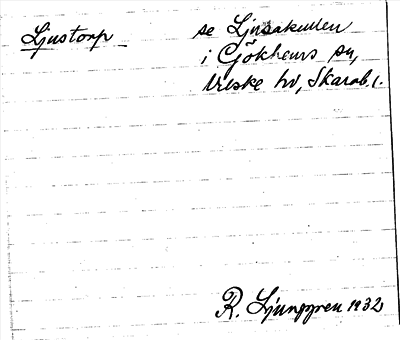 Ljustorp se Ljusakullen
i Gökhems sn,
Vilske hd, Skarab. l.
R. Ljunggren 1932